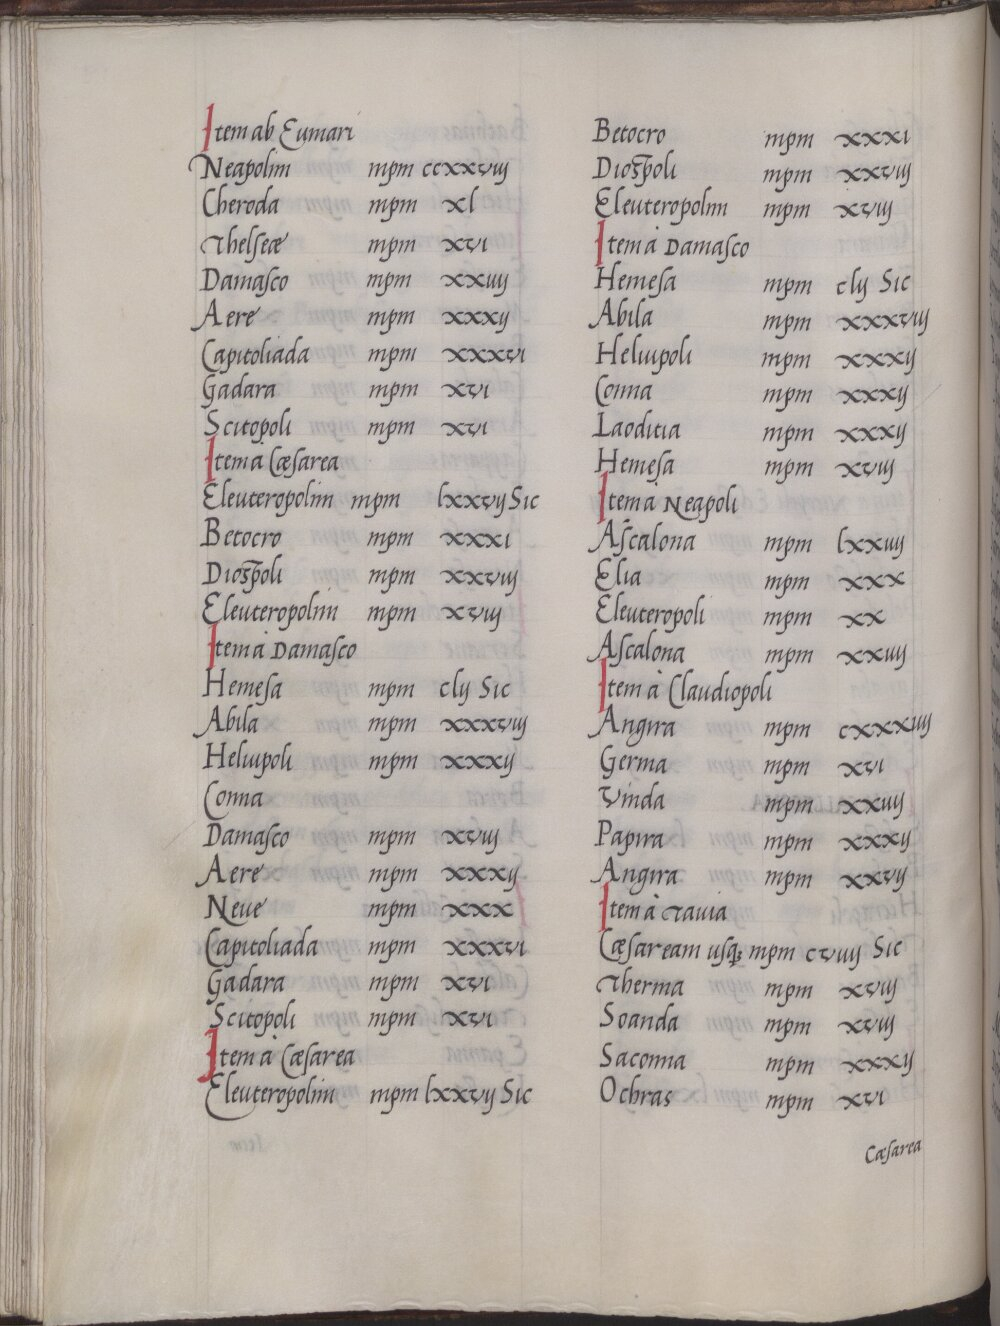 Item ab Eumari
Neapolim mpm ccxxviij
Cheroda mpm xl
Thelseæ mpm xvi
Damasco mpm xxiiij
Aere mpm xxxij
Capitoliada mpm xxxvi
Gadara mpm xvi
Scitopoli mpm xvi
Item à Cæsarea
Eleuteropolim mpm lxxvij Sic
Betocro mpm xxxi
Diospoli mpm xxviij
Eleuteropolim mpm xviij
Item à Damasco
Hemesa mpm clij Sic
Abila mpm xxxviij
Heliupoli mpm xxxij
Conna
Damasco mpm xviij
Aere mpm xxxij
Neue mpm xxx
Capitoliada mpm xxxvi
Gadara mpm xvi
Scitopoli mpm xvi
Item à Cæsarea
Eleuteropolim mpm lxxvij Sic
Betocro mpm xxxi
Diospoli mpm xxviij
Eleuteropolim mpm xviij
Item à Damasco
Hemesa mpm clij Sic
Abila mpm xxxviij
Heliupoli mpm xxxij
Conna mpm xxxij
Laoditia mpm xxxij
Hemesa mpm xviij
Item à Neapoli
Ascalona mpm lxxiiij
Elia mpm xxx
Eleuteropoli mpm xx
Ascalona mpm xxiiij
Item à Claudiopoli
Angira mpm cxxxiiij
Germa mpm xvi
Vinda mpm xxiiij
Papira mpm xxxij
Angira mpm xxvij
Item à Tavia
Cæsaream usq; mpm cviiij Sic
Therma mpm xviij
Soanda mpm xviij
Saconna mpm xxxij
Ochras mpm xvi
Cæsarea